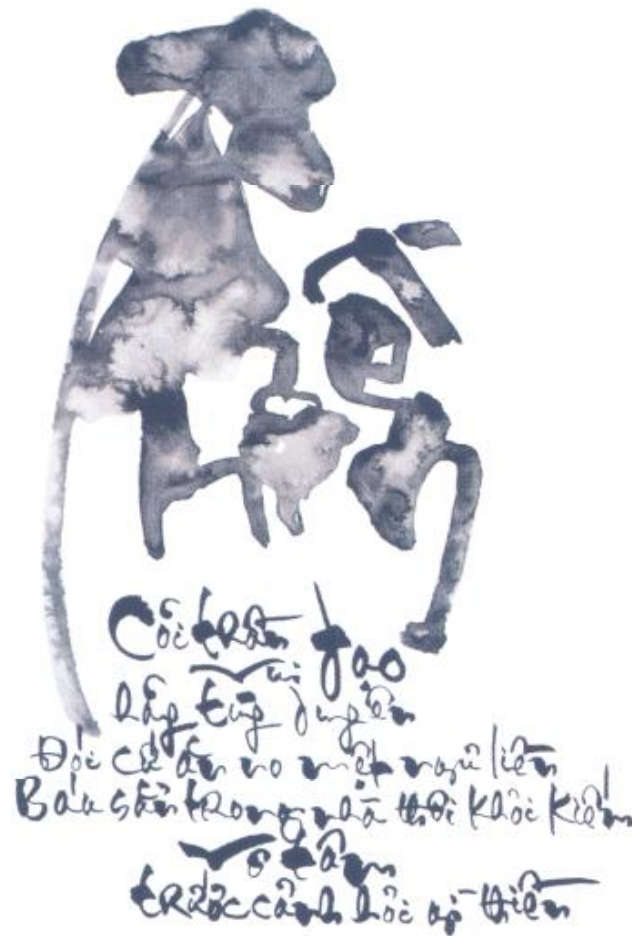 Thiền
Cõi trần vui đạo
hãy tùy duyên
Đói cứ ăn no mệt ngủ liền
Báu sẵn trong nhà thôi khỏi kiếm
Vô tâm
trước cảnh hỏi gì thiền